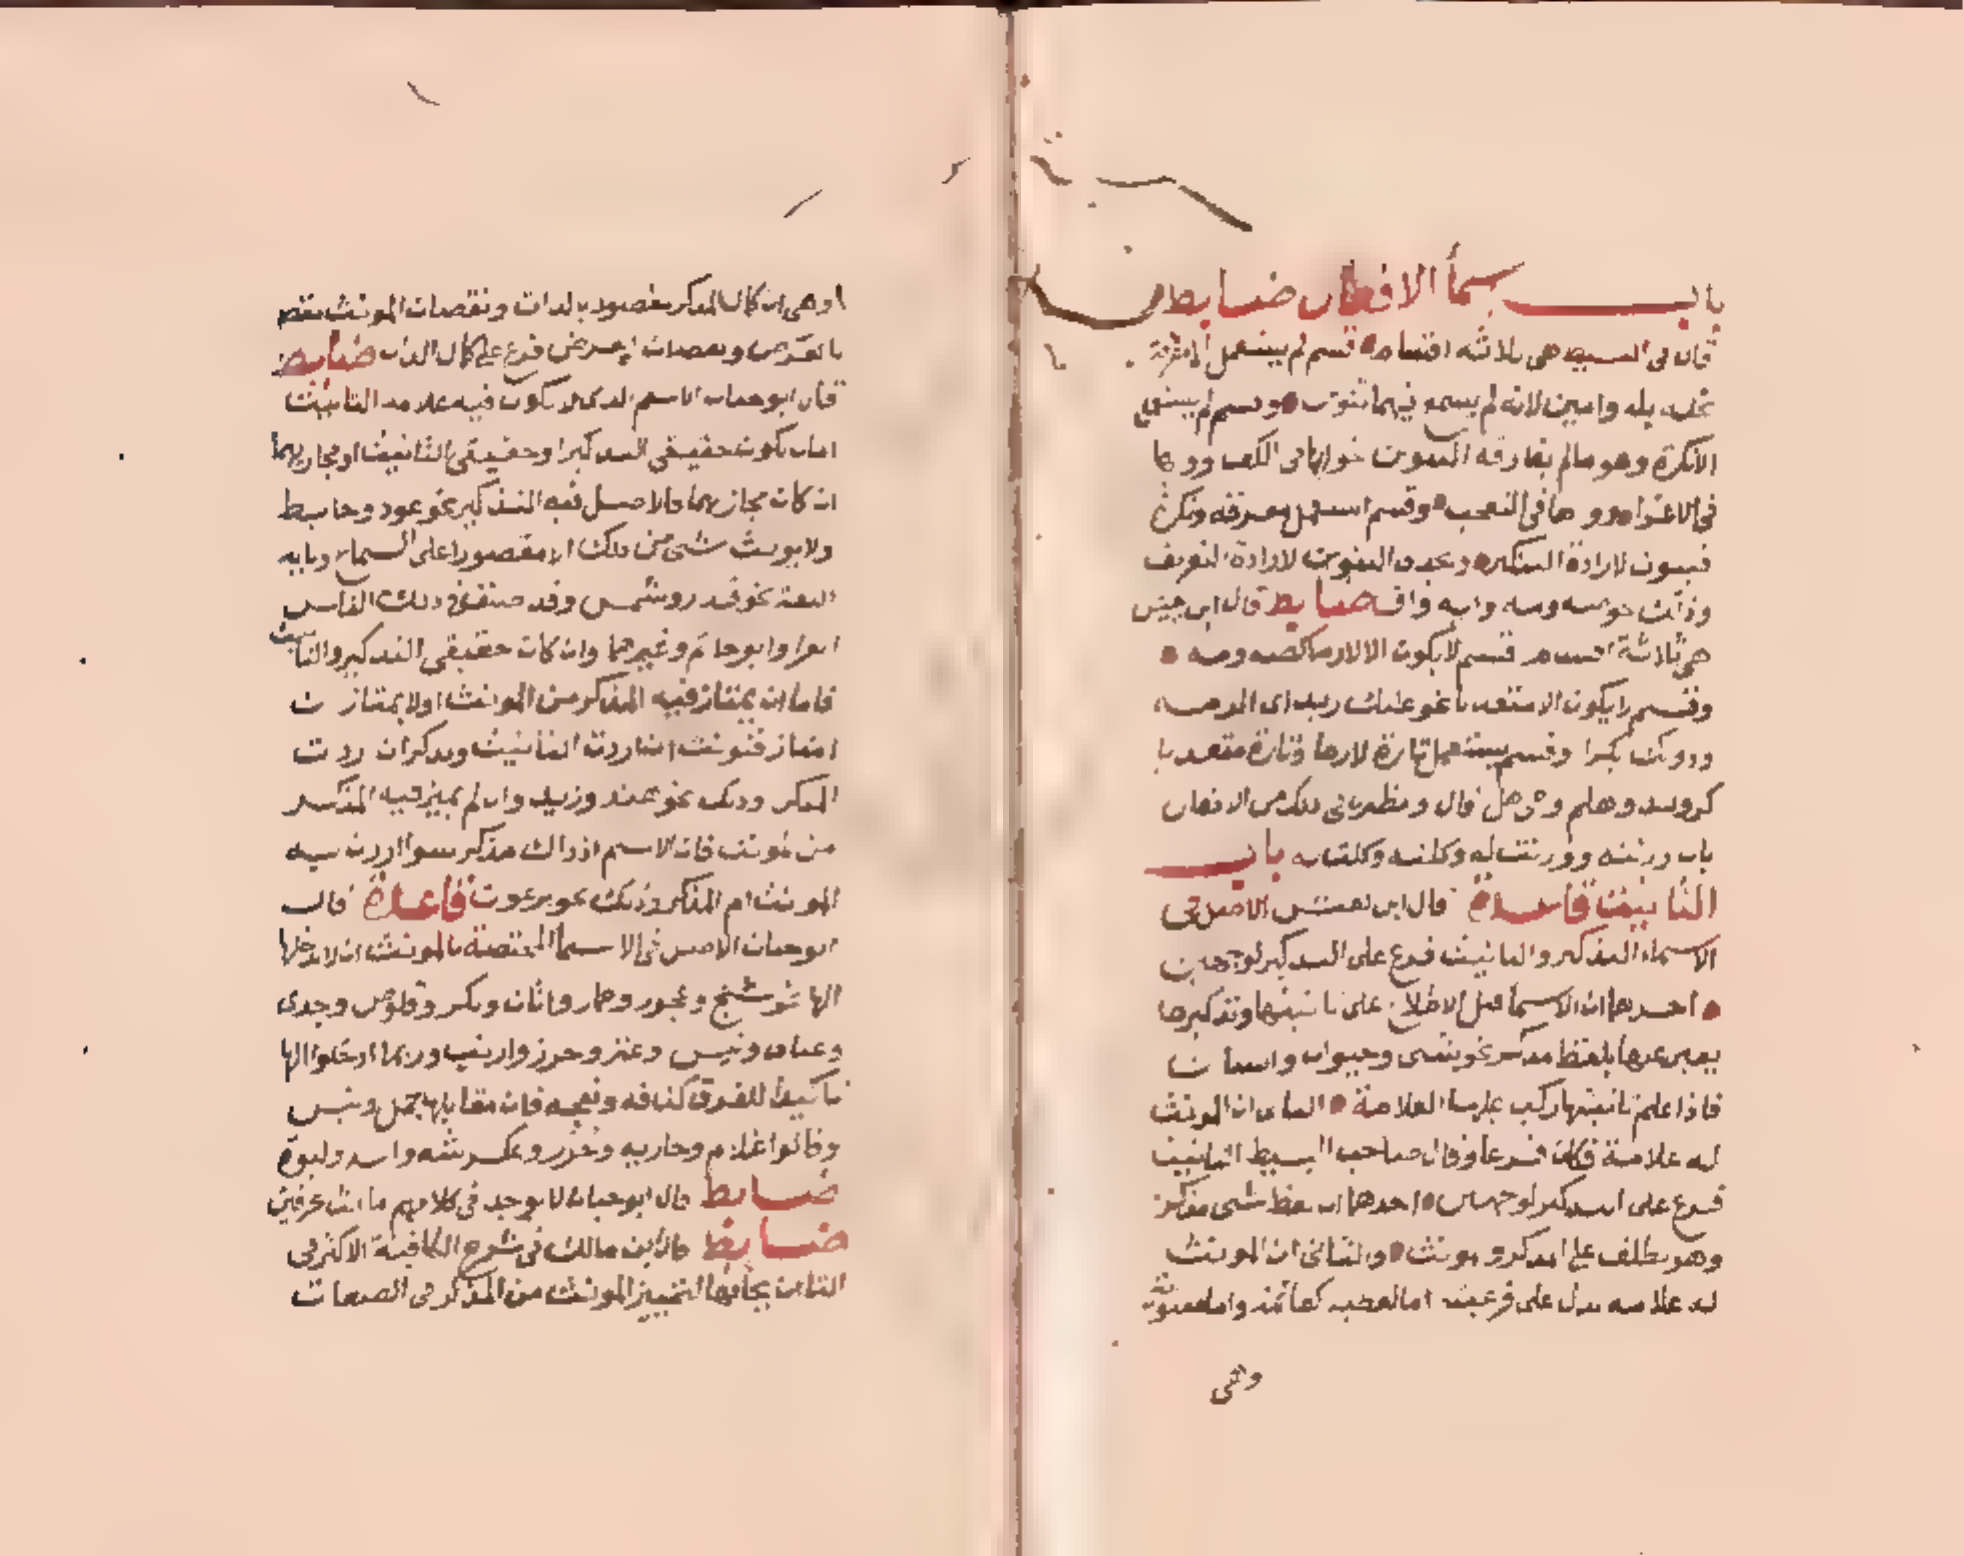 باب سمأ الافعال ضابط
قال في البسيط هي ثلاثه اقسام قسم لم يستعمل الامعرفة
نحو بله وامين لانه لم يسمع فيهما تنوين وقسم لم يستعمل
الانكرة وهو مالم يفارقه التنوين نحو ايها في الكف وويها
في الاغراء وواها في التعجب وقسم استعمل معرفه ونكرة
فينون لارادة التنكير ويحذف التنوين لارادة التعريف
وذلك نحو صه ومه وايه واف ضابط قال ابن
هي ثلاثة اقسام قسم لايكون الا لازما كصه ومه
وقسم لايكون الامتعديا نحو عليك زيدا اى الزمه
ودونك بكرا وقسم يستعمل تارة لازما وتارة متعديا
كرويد وهلم وحي هل قال ونظير باقي ذلك من الافعال
باب وزنته ووزنت له وكلته وكلت له باب
التانيث قاعدة قال ابن يعيش الاصل في
الاسماء التذكير والتانيث فرع على التذكير لوجهين
احدهما ان الاسمأ قبل الاطلاع على تانيثها وتذكيرها
يعبر عنها بلفظ مذكر نحو شي وحيوان وانسان
فاذا علم تانيثها ركب عليها العلامة الثاني ان المونث
له علامة فكان فرعا وقال صاحب البسيط التانيث
فرع على التذكير لوجهين احدهما ان لفظ شي مذكر
وهو يطلق على المذكر والمونث والثاني ان المونث
له علامه تدل على فرعيته اما لفظيه كقائمة واما معنوية
وهي
او هي ان كمال المذكر مقصود بالذات ونقصان المونث مقصود
بالعرض ونقصان العرض فرع على كمال الذات ضابط
قال ابو حيان الاسم الذى لا يكون فيه علامه التانيث
اما ان يكون حقيقي التذكير او حقيقي التانيث او مجازيهما
ان كان مجازيهما فالاصل فيه التذكير نحو عود وحايط
ولايونث شي من ذلك الا مقصورا على السماع وبابه
اللغه نحو قدر وشمس وقد صنف في ذلك الناس
الفرا وابو حاتم وغيرهما وان كان حقيقي التذكير والتانيث
فاما ان يمتاز فيه المذكر من المونث اولا يمتاز ان
امتاز فتونث ان اردت التانيث وتذكر ان اردت
المذكر وذلك نحو هند وزيد وان لم يميز فيه المذكر
من المونث فان الاسم اذ ذاك مذكر سوا اردت به
المونث ام المذكر وذلك نحو برغوث قاعدة قال
ابو حيان الاصل في الاسمأ المختصة بالمونث ان لا يدخلها
الها نحو شيخ وعجوز وحمار واتان وبكر وقلوص وجدى
وعناق وتيس وعنز وخزز وارنب وربما ادخلوا الها
تاكيدا للفرق كناقه ونعجه فان مقابلهما جمل وكبش
وقالوا غلام وجاريه وخزز وعكرشه واسد ولبوة
ضابط قال ابو حيان لا يوجد في كلامهم ما انث بحرفين
ضابط قال ابن مالك في شرح الكافية الاكثر في
التا ان يجاء بها لتمييز المونث من المذكر في الصفات